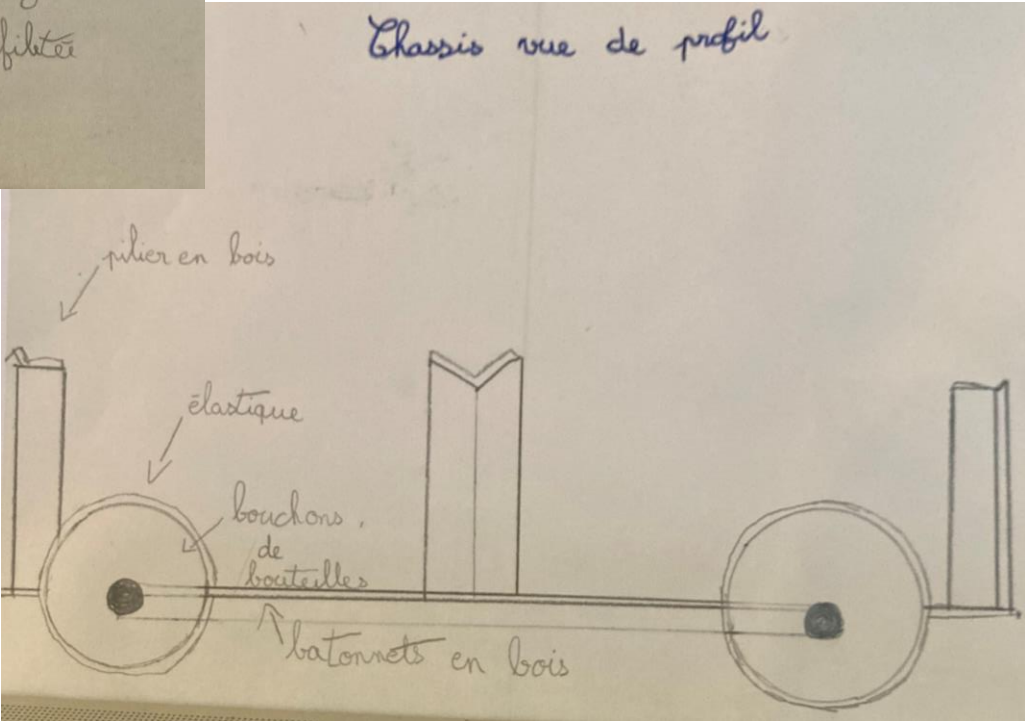 filetée
Chassis vue de profil
pilier en bois
élastique
bouchons
de
bouteilles
batonnets en bois